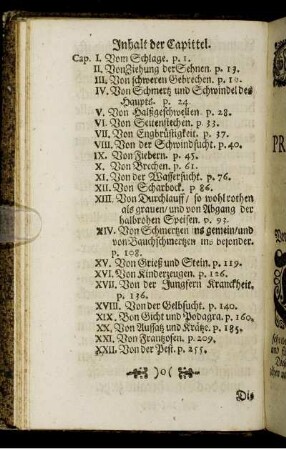 Inhalt der Capittel.
Cap. I. Vom Schlage. p. 1.
II. Von Ziehung der Sehnen. p. 13.
III. Von schweren Gebrechen. p. 10.
IV. Von Schmertz und Schwindel des
Haupts. p. 24
V. Von Halßgeschwellen p. 28.
VI. Von Seitenstechen. p. 33.
VII. Von Engbrüstigkeit. p. 37.
VIII. Von der Schwindsucht. p. 40.
IX. Von Fiebern. p. 45.
X. Von Brechen. p. 61.
XI. Von der Wassersucht. p. 76.
XII. Von Scharbock. p 86.
XIII. Von Durchlauff / so wohl rothen
als grauen / und von Abgang der
halbrohen Speisen. p. 93
XIV. Von Schmertzen ins gemein / und
von Bauchschmertzen ins besonder.
p. 108.
XV. Von Grieß und Stein. p. 119.
XVI. Von Kinderzeugen. p. 126.
XVII. Von der Jungfern Kranckheit.
p. 136.
XVIII. Von der Gelbsucht. p. 140.
XIX. Von Gicht und Podagra. p. 160.
XX. Von Aussatz und Krätze. p. 185.
XXI. Von Frantzosen. p. 209.
XXII. Von der Pest. p. 255.
)o(
Die